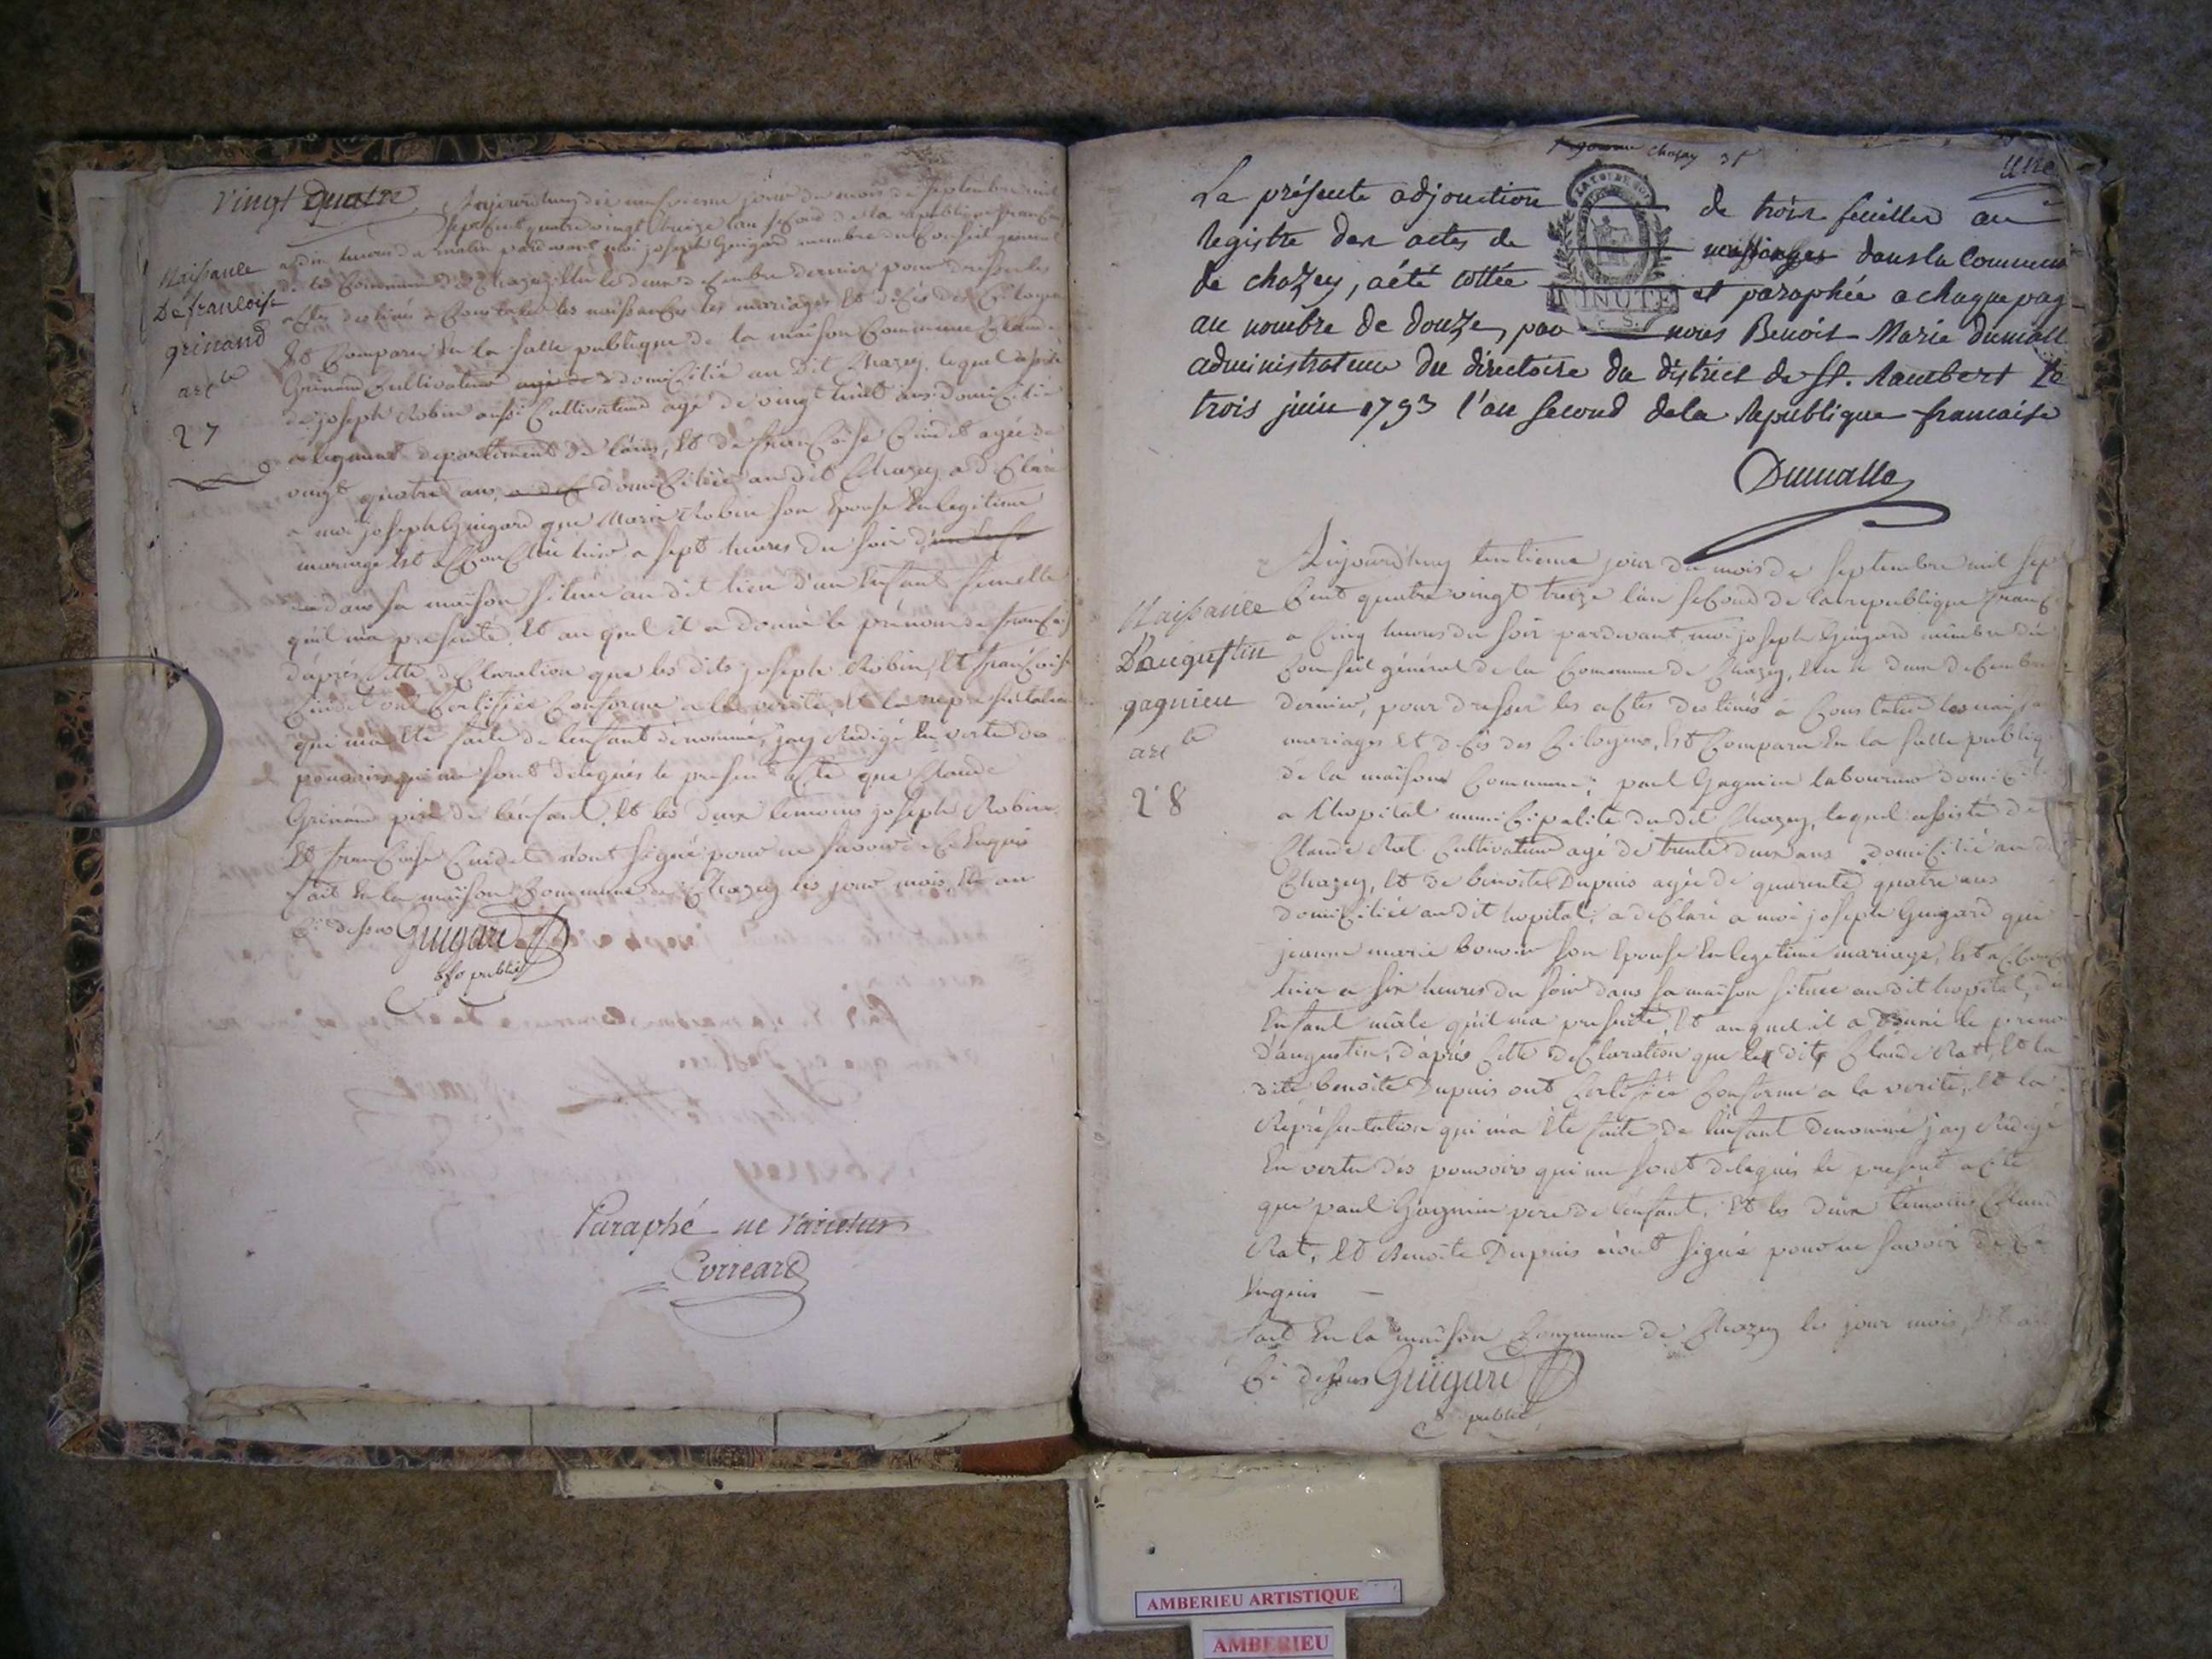 vingt quatre
Aujourdhuy dix neufvieme jour du mois de septembre mil
sept Cent quatre vingt treize l'an second de la republique francaise
a dix heures du matin pardevant moi joseph Guigard membre du Conseil général
de la Commune de Chazey Elu le deux decembre dernier pour dresser les
actes destinés a Constater les naissances les mariages Et décés des Citoyens
Est Comparu En la salle publique de la maison Commune Claude
Grinand Cultivateur domicilié au dit Chazey, lequel assisté
de joseph Robin aussi Cultivateur agé de vingt huit ans domicilié
a legment departement de lains, Et de francoise Cuidet agée de
vingt quatre ans domiciliée au dit Chazey a déClaré
a moi joseph Guigard que Marie Robin son Epouse En legitime
mariage Est accouchée hier a sept heures du soir
dans sa maison située au dit lieu d'un Enfant femelle
quil ma presenté Et au quel il a donné le prénom de francoise
d'après Cette deClaration que les dits joseph Robin Et francoise
Cuidet ont Certifiée Conforme a la verité, Et la representation
qui ma Eté faite de lenfant denommé, jay Redigé En vertu des
pouvoirs qui me sont delegués le present acte que Claude
Grinand pere de lenfant, Et les deux temoins joseph Robin
Et francoise Cuidet n'ont signé pour ne savoir de Ce Enquis
fait En la maison Commune de Chazey les jour mois, Et an
Ci dessus Guigard
offo public
Naissance
De francoise
grinand
arcle
27
Paraphé ne varietur
Corrcard
chazey 31
une
La présente adjonction de trois feuilles au
registre des actes de naissances dans la Commune
de chazey, a été cottée et paraphée a chaque pag
MINUTE
au nombre de douze, par nous Benoit Marie Dumall
administrateur du directoire du district de St. Rambert le
trois juin 1793 l'an second de la Republique francaise
Dumalle
Naissance
D'augustin
gagnieu
arcle
28
Aujourd'huy tentieme jour du mois de septembre mil sept
Cent quatre vingt treize l'an second de la republique franc
a Cinq heures du soir pardevant moi joseph Guigard membre du
Conseil général de la Commune de Chazey, Elu le deux decembre
dernier, pour dresser les actes destinés a Constater les naissa
mariages Et décés des Citoyens, Est Comparu En la salle publiq
de la maison Commune; paul Gagnieu laboureur domicilié
a lhopital municipalité du dit Chazey, lequel assisté de
Claude Rat Cultivateur agé de trente deux ans domicilié au dit
Chazey, Et de benoite Dupuis agée de quarente quatre ans
domiciliée au dit hopital, a deClaré a moi joseph Guigard que
jeanne marie bouvier son Epouse En legitime mariage, Est accouch
hier a six heures du soir dans sa maison située au dit hopital, d'un
Enfant mâle quil ma presenté, Et au quel il a donné le preno
d'augustin, d'après Cette deClaration que le dit Claude Rat, Et la
dite benoite Dupuis ont Certifiée Conforme a la verité, Et la
Représentation qui ma Eté faite de lenfant denommé jay Redigé
En vertu des pouvoirs qui me sont delegués le present acte
que paul Gagnieu pere de lenfant, Et les deux témoins Claud
Rat, Et Benoite Dupuis n'ont signé pour ne savoir de Ce
Enquis
fait En la maison Commune de Chazey les jour mois, Et an
Ci dessus Guigard
public
AMBERIEU ARTISTIQUE
AMBERIEU